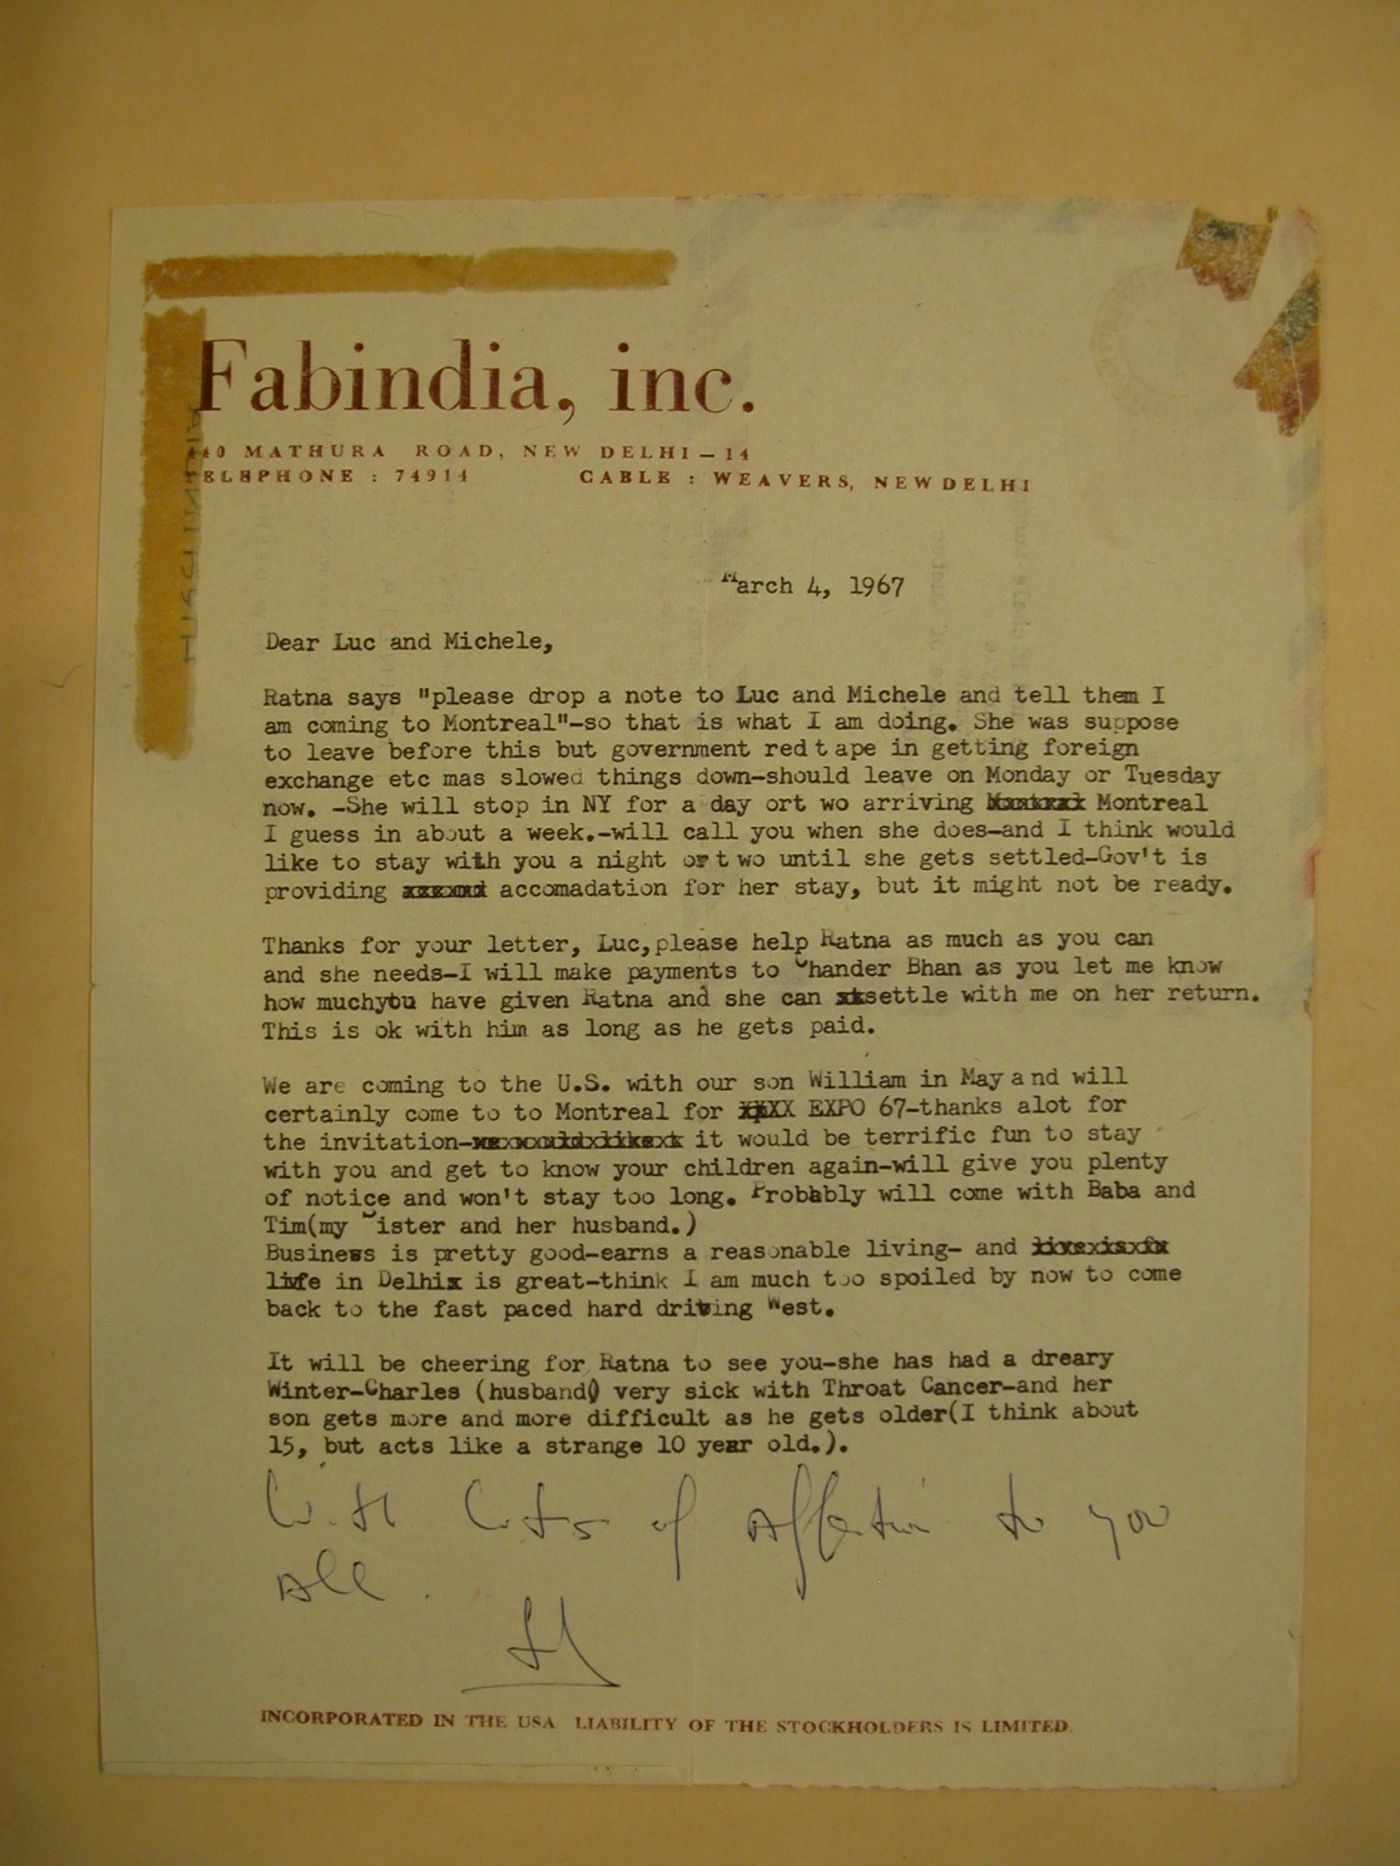 Fabindia, inc.
40 MATHURA ROAD, NEW DELHI – 14
TELEPHONE : 74914 CABLE : WEAVERS, NEWDELHI
March 4, 1967
Dear Luc and Michele,
Ratna says "please drop a note to Luc and Michele and tell them I
am coming to Montreal"-so that is what I am doing. She was suppose
to leave before this but government red t ape in getting foreign
exchange etc mas slowed things down-should leave on Monday or Tuesday
now. -She will stop in NY for a day ort wo arriving Montreal
I guess in about a week.-will call you when she does-and I think would
like to stay with you a night or t wo until she gets settled-Gov't is
providing accomadation for her stay, but it might not be ready.
Thanks for your letter, Luc,please help Ratna as much as you can
and she needs-I will make payments to Chander Bhan as you let me know
how muchyou have given Ratna and she can settle with me on her return.
This is ok with him as long as he gets paid.
We are coming to the U.S. with our son William in May a nd will
certainly come to to Montreal for XXXX EXPO 67-thanks alot for
the invitation- it would be terrific fun to stay
with you and get to know your children again-will give you plenty
of notice and won't stay too long. Probably will come with Baba and
Tim(my Sister and her husband.)
Business is pretty good-earns a reasonable living- and
life in Delhix is great-think I am much too spoiled by now to come
back to the fast paced hard driving West.
It will be cheering for Ratna to see you-she has had a dreary
Winter-Charles (husband) very sick with Throat Cancer-and her
son gets more and more difficult as he gets older(I think about
15, but acts like a strange 10 year old.).
With Lots of Affection to you
All.
INCORPORATED IN THE USA LIABILITY OF THE STOCKHOLDERS IS LIMITED